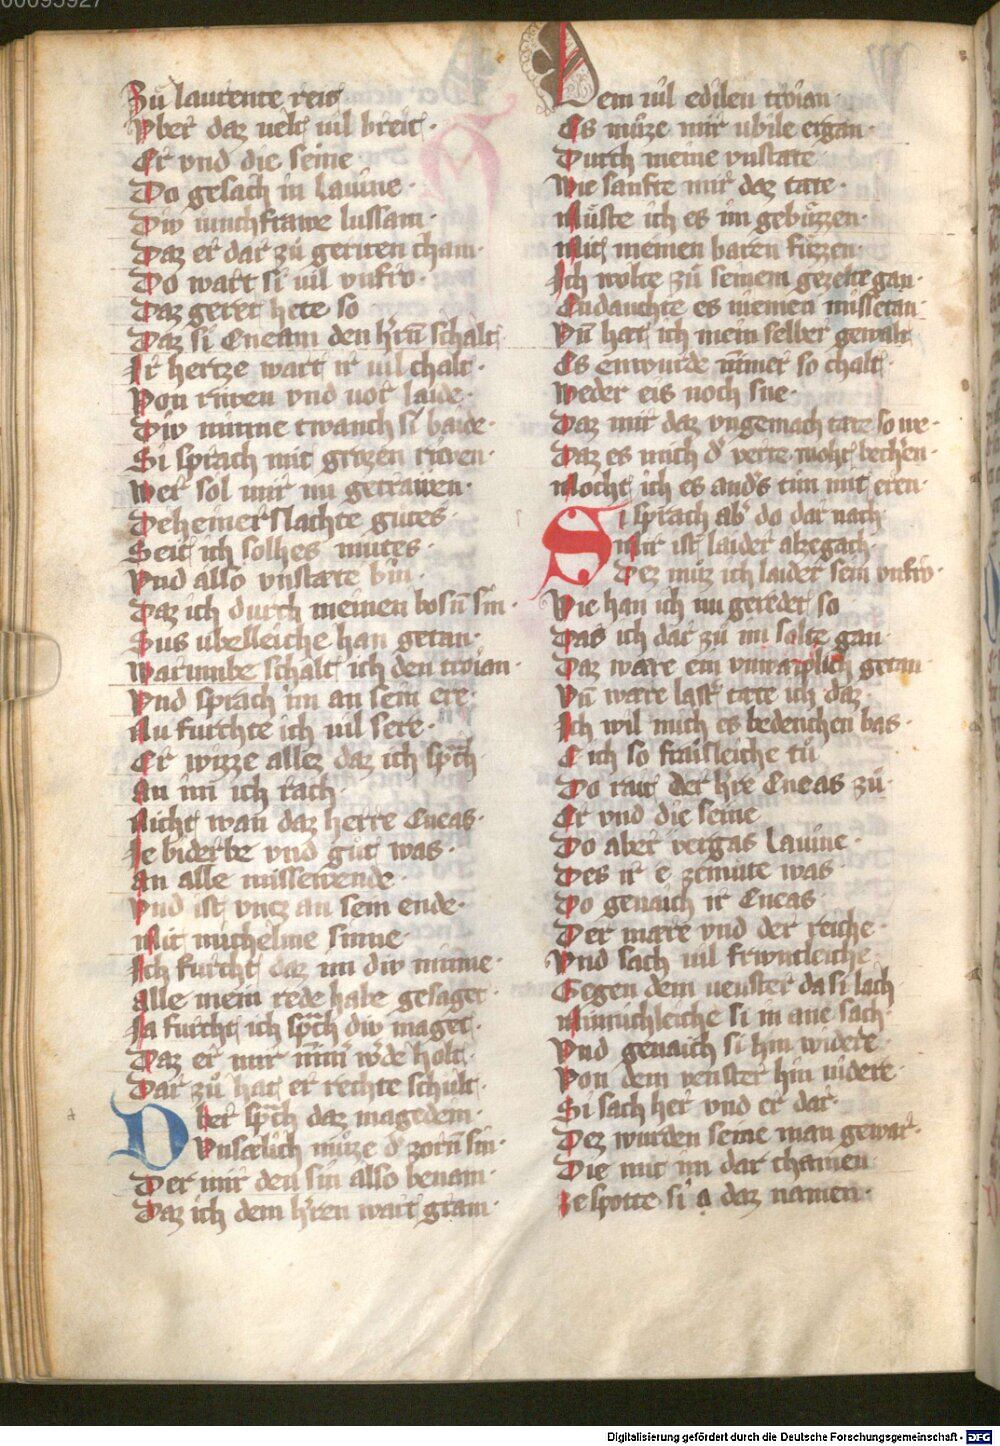 00095927
Zů laurente reit
Vber daz velt uil breit·
Er vnd die seine
Do gesach in lauine·
Div iunchfrawe lussam·
Daz er dar zů geriten cham·
Do wart si uil vnfro·
Daz geret hete so
Daz si Eneam den h̄rn̄ schalt
Ir hertze wart ir uil chalt·
Von riwen vnd vor laide·
Div minne twanch si baide·
Si sprach mit grozen riwen·
Wer sol mir nu getrawen·
Deheiner slachte gůtes·
Seit ich solhes můtes·
Vnd also vnstæte bin·
Daz ich durch meinen bosn̄ sin·
Sus ubelleiche han getan·
Warumbe schalt ich den troian·
Vnd sprach im an sein ere·
Nu furchte ich uil sere·
Er wizze allez daz ich sp̄ch
An im ich rach·
Nicht wan daz herre Eneas·
Je biderbe vnd gůt was·
An alle missewende·
Vnd ist vncz an sein ende·
Mit michelme sinne
Ich furcht daz im div minne·
Alle mein rede habe gesaget·
Ja furcht ich sp̄ch div maget·
Daz er mir nim̄ w̄de holt·
Dar zů hat er rechte schult·
Aber sp̄ch daz magedein·
Vnsælich můze d̄ zorn sin·
Der mir den sin also benam·
Daz ich dem h̄ren wart gram·
Dem uil edilen troian·
Es můze mir ubile ergan·
Durch meine vnstate
Wie sanfte mir daz tate·
Můste ich es im gebůzzen·
Mit meinen baren fůzzen·
Ich wolte zů seinem gezelte gan·
Endauchte es niemen missetan·
Vn̄ hat ich mein selber gewalt
Es enwurde nim̄er so chalt·
Weder eis noch sne·
Daz mir daz vngemach tate so we·
Daz es mich d̄ verte moht bech̄en·
Mocht ich es and̄s tůn mit eren·
Si sprach ab̄ do dar nach
Mir ist laider alzegach·
Dez můz ich laider sein vnfro·
Wie han ich nu geredet so
Das ich dar zů im solte gan
Daz ware ein vnwæplich getan
Vn̄ ware last̄ tate ich daz·
Ich wil mich es bedenchen bas·
E ich so fraisleiche tů
Do rait der h̄re Eneas zů·
Er vnd die seine
Do aber vergas lauine·
Des ir e zemůte was
Do genaich ir Eneas
Der mære vnd der reiche·
Vnd sach uil frwntleiche
Gegen dem uenster da si lach
Minnichleiche si in ane sach·
Vnd genaich si him widere·
Von dem venster hin nidere·
Si sach her vnd er dar·
Dez wurden seine man gewar·
Die mit im dar chamen
Ze spotte si a daz namen·
Digitalisierung gefördert durch die Deutsche Forschungsgemeinschaft - DFG